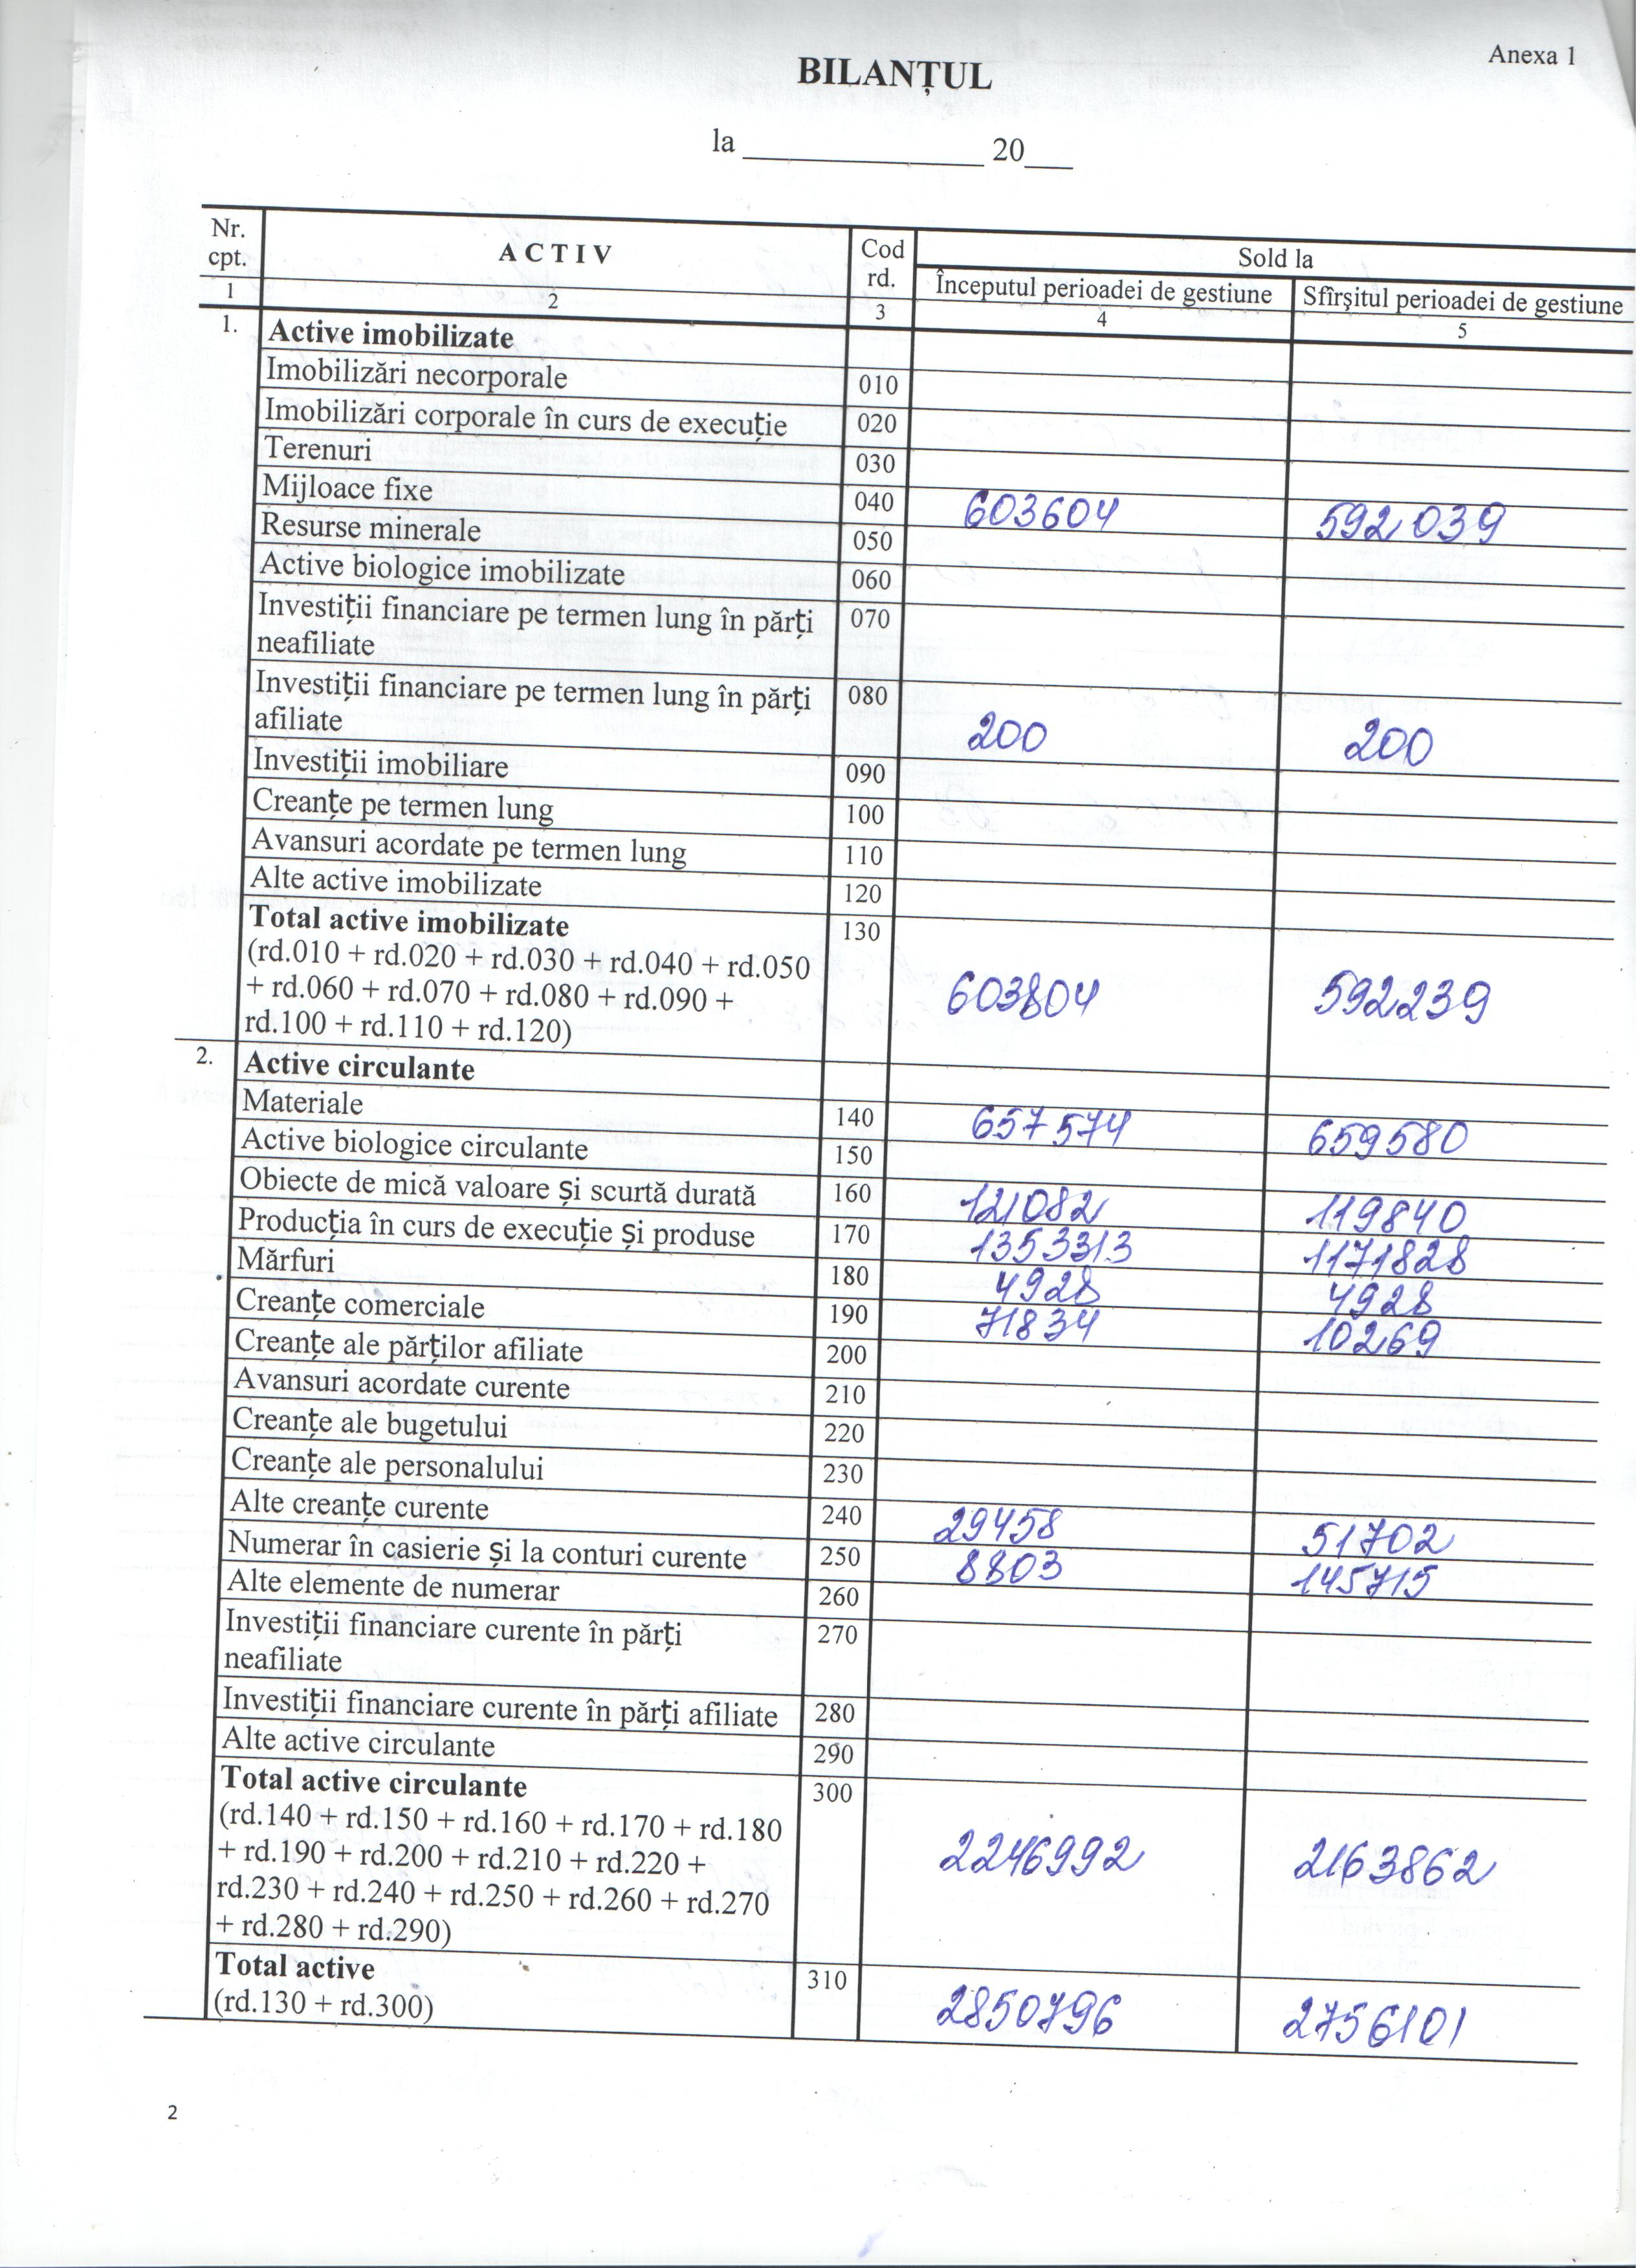 Anexa 1
BILANȚUL
la _______________ 20___
Nr. cpt. A C T I V Cod rd. Sold la
Începutul perioadei de gestiune Sfîrşitul perioadei de gestiune
1 2 3 4 5
1. Active imobilizate
Imobilizări necorporale 010
Imobilizări corporale în curs de execuție 020
Terenuri 030
Mijloace fixe 040 603604 592039
Resurse minerale 050
Active biologice imobilizate 060
Investiții financiare pe termen lung în părți 070
neafiliate
Investiții financiare pe termen lung în părți 080
afiliate 200 200
Investiții imobiliare 090
Creanțe pe termen lung 100
Avansuri acordate pe termen lung 110
Alte active imobilizate 120
Total active imobilizate 130
(rd.010 + rd.020 + rd.030 + rd.040 + rd.050
+ rd.060 + rd.070 + rd.080 + rd.090 + 603804 592239
rd.100 + rd.110 + rd.120)
2. Active circulante
Materiale 140 657574 659580
Active biologice circulante 150
Obiecte de mică valoare și scurtă durată 160 121082 119840
Producția în curs de execuție și produse 170 1353313 1171828
Mărfuri 180 4928 4928
Creanțe comerciale 190 71834 10269
Creanțe ale părților afiliate 200
Avansuri acordate curente 210
Creanțe ale bugetului 220
Creanțe ale personalului 230
Alte creanțe curente 240 29458 51702
Numerar în casierie și la conturi curente 250 8803 145715
Alte elemente de numerar 260
Investiții financiare curente în părți 270
neafiliate
Investiții financiare curente în părți afiliate 280
Alte active circulante 290
Total active circulante 300
(rd.140 + rd.150 + rd.160 + rd.170 + rd.180
+ rd.190 + rd.200 + rd.210 + rd.220 + 2246992 2163862
rd.230 + rd.240 + rd.250 + rd.260 + rd.270
+ rd.280 + rd.290)
Total active 310
(rd.130 + rd.300) 2850796 2756101
2